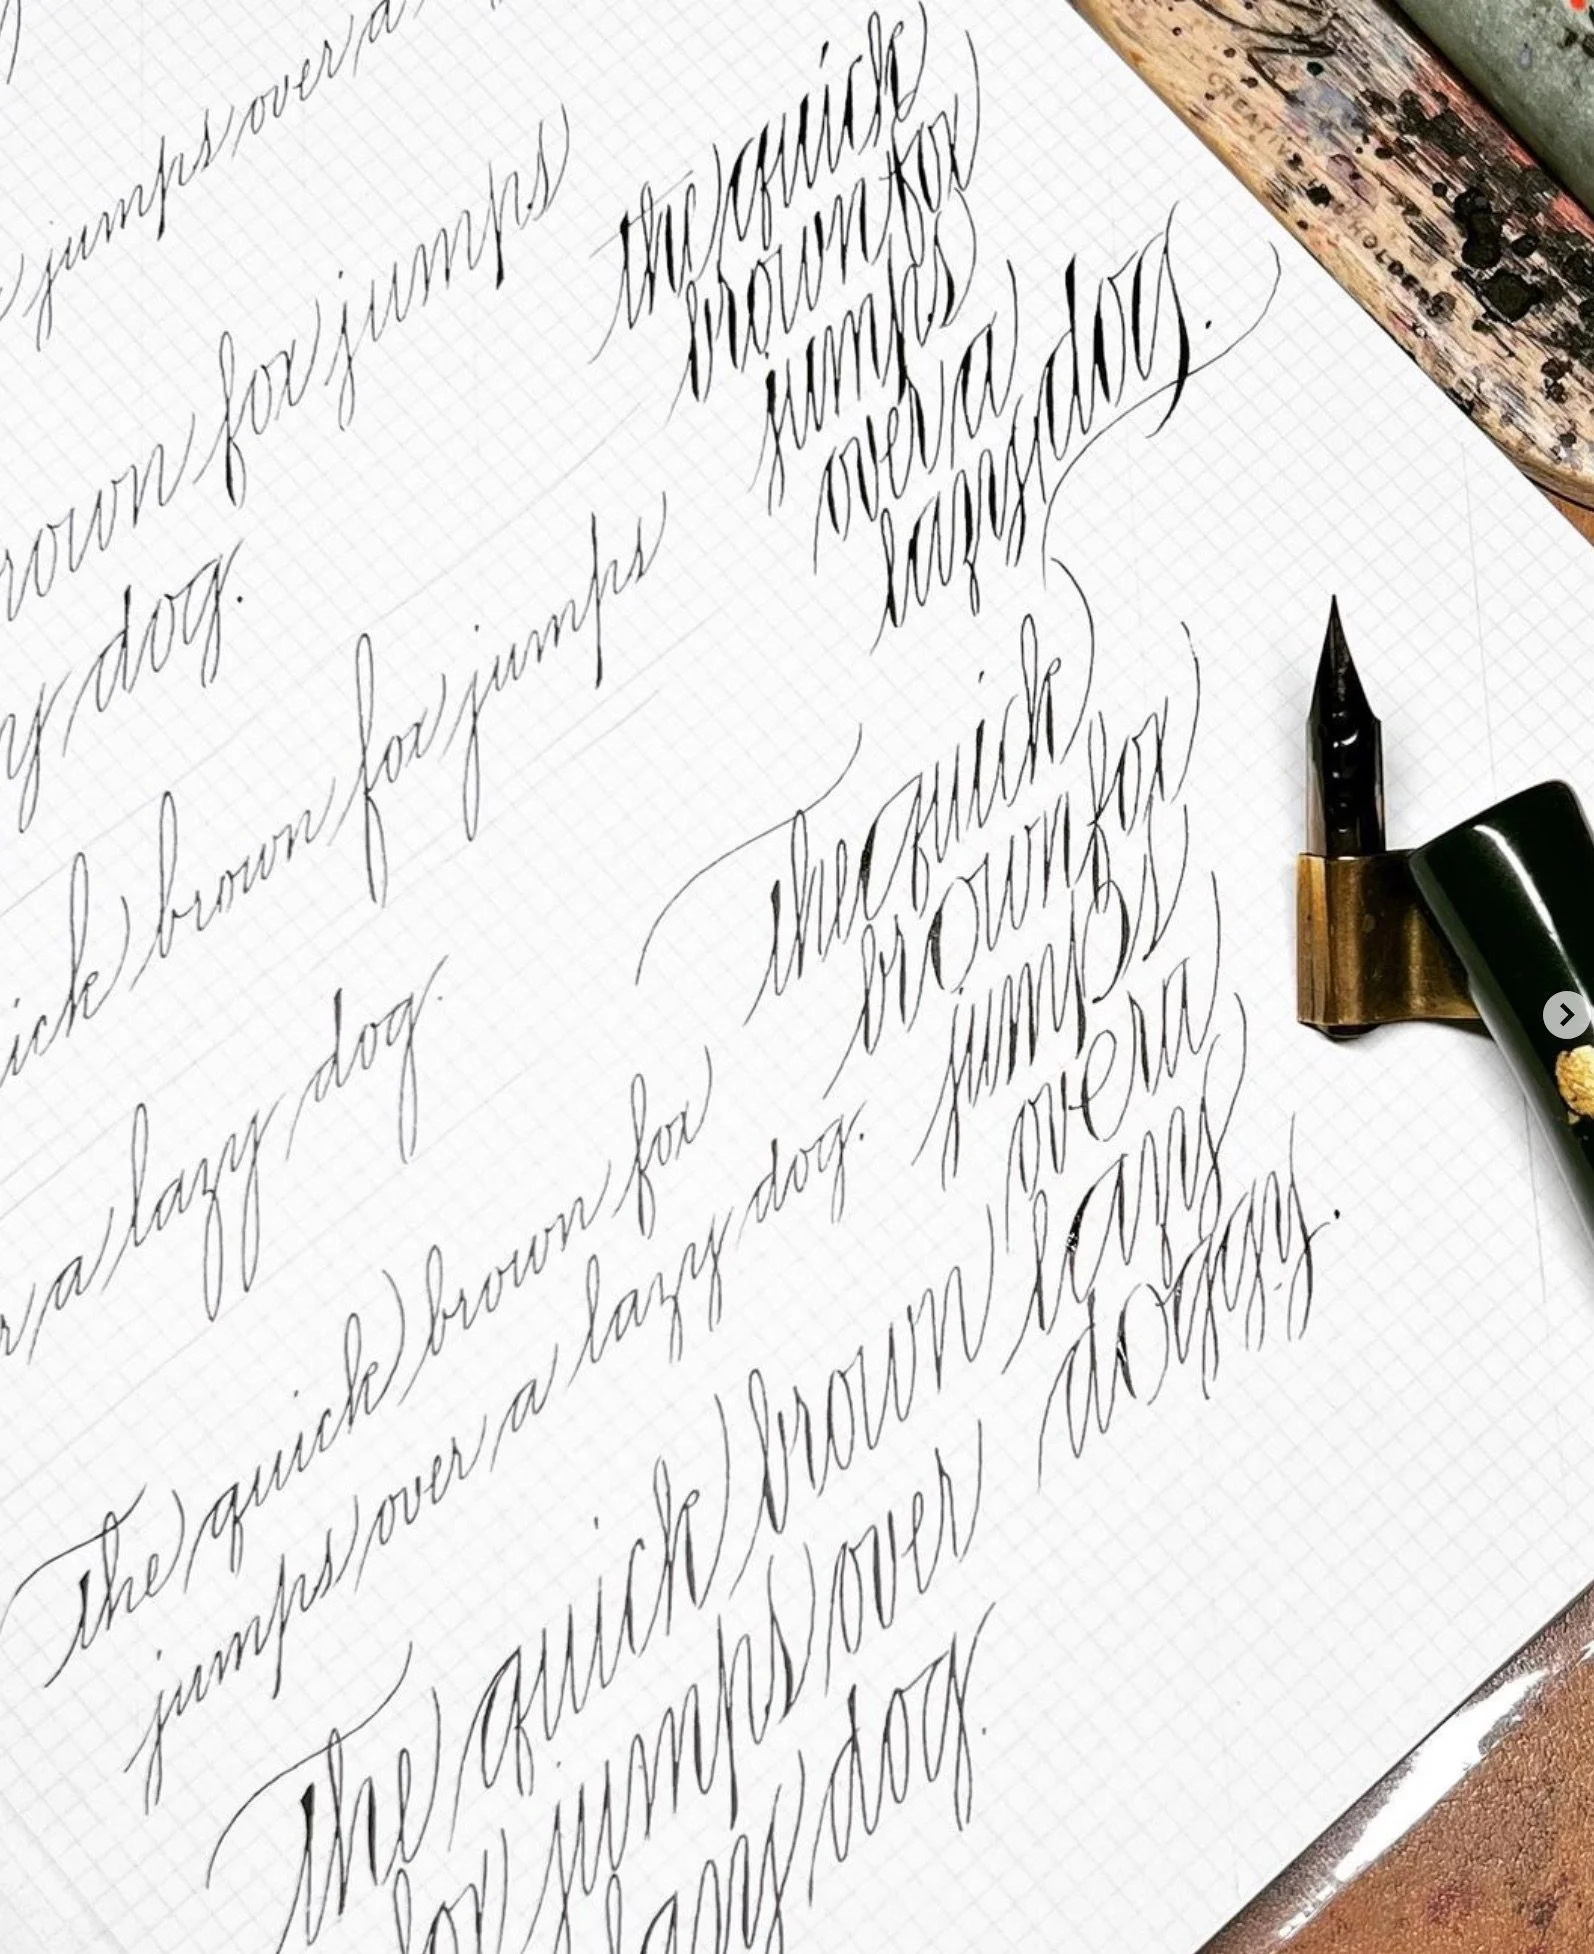 jumps over a
rown fox jumps
y dog.
ick brown fox jumps
r a lazy dog.
The quick brown fox
jumps over a lazy dog.
The quick brown
fox jumps over
lazy dog.
the quick
brown fox
jumps
over a
lazy dog.
the quick
brown fox
jumps
over a
lazy
doggy.
CREATIVE
HOLDER